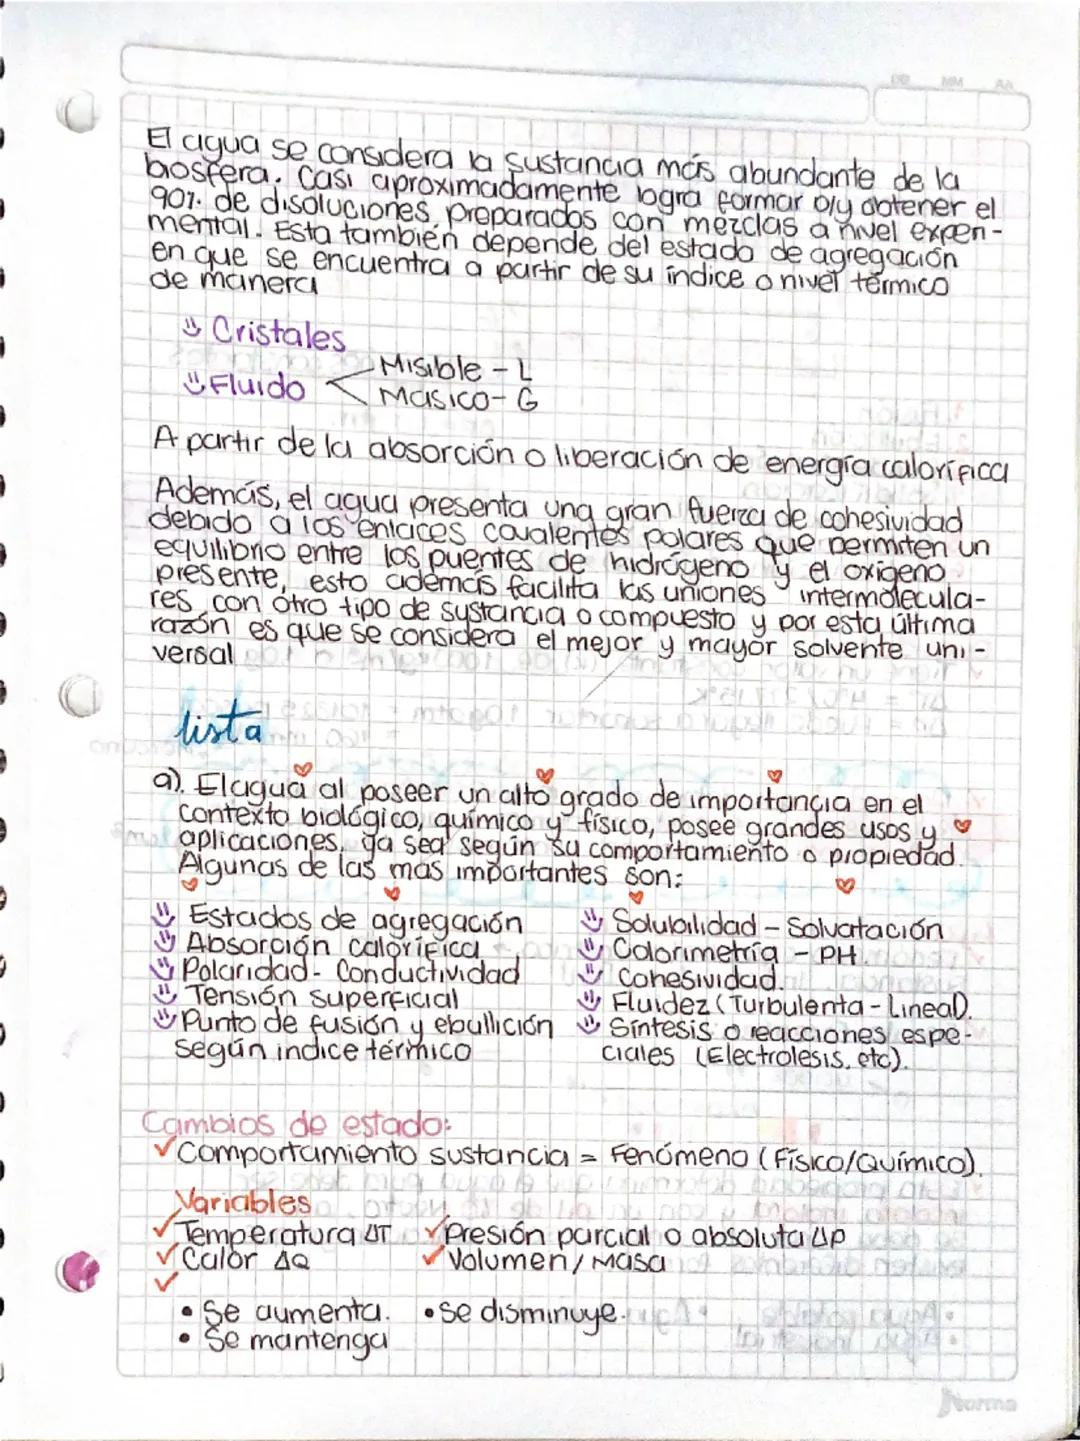 DD MM AA
El agua se considera la sustancia más abundante de la
biosfera. Casi aproximadamente logra formar o/y obtener el
90%. de disoluciones preparados con mezclas a nivel experi-
mental. Esta también depende del estado de agregación
en que se encuentra a partir de su índice o nivel térmico
de manera
Cristales
Fluido Misible - L
Masico- G
A partir de la absorción o liberación de energía calorífica
Además, el agua presenta una gran fuerza de cohesividad
debido a los enlaces covalentes polares que permiten un
equilibrio entre los puentes de hidrógeno y el oxigeno
presente, esto además facilita las uniones intermolecula-
res con otro tipo de sustancia o compuesto y por esta última
razón es que se considera el mejor y mayor solvente uni-
versal
lista
a). El agua al poseer un alto grado de importancia en el
contexto biológico, químico y físico, posee grandes usos y
aplicaciones, ya sea según su comportamiento o propiedad.
Algunas de las más importantes son:
Estados de agregación
Absorción calorífica
Polaridad - Conductividad
Tensión superficial
Punto de fusión y ebullición
según indice térmico
Solubilidad - Solvatación
Calorimetría - PH.
Cohesividad.
Fluidez (Turbulenta - Lineal).
Síntesis o reacciones espe-
ciales (Electrolesis, etc).
Cambios de estado:
✓Comportamiento sustancia = Fenómeno (Físico/Químico).
Variables
✓Temperatura ΔT ✓Presión parcial o absoluta ΔP
✓Calor ΔQ ✓Volumen/Masa
✓
• Se aumenta. • Se disminuye.
• Se mantenga
Norma